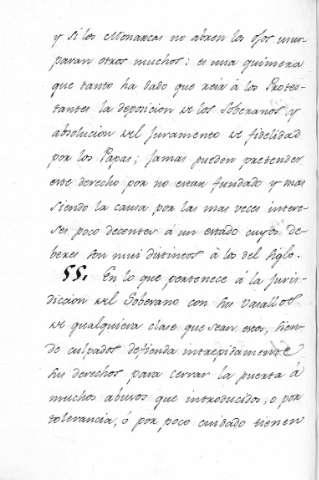 y si los Monarcas no abren los ojos usur-
paran otros muchos: es una quimera
que tanto ha dado que reir á los Protes-
tantes la deposicion de los Soberanos y
absolucion del Juramento de fidelidad
por los Papas; jamas pueden pretender
este derecho por no estar fundado y mas
siendo la causa por las mas veces intere-
ses poco decentes á un estado cuyos de-
beres son mui distintos á los del siglo.
55. En lo que pertenece á la Juris-
diccion del Soberano con sus Vasallos
de qualquiera clase que sean estos, sien-
do culpados defienda intrepidamente
sus derechos para cerrar la puerta á
muchos abusos que introducidos, o por
tolerancia, ó por poco cuidado tienen